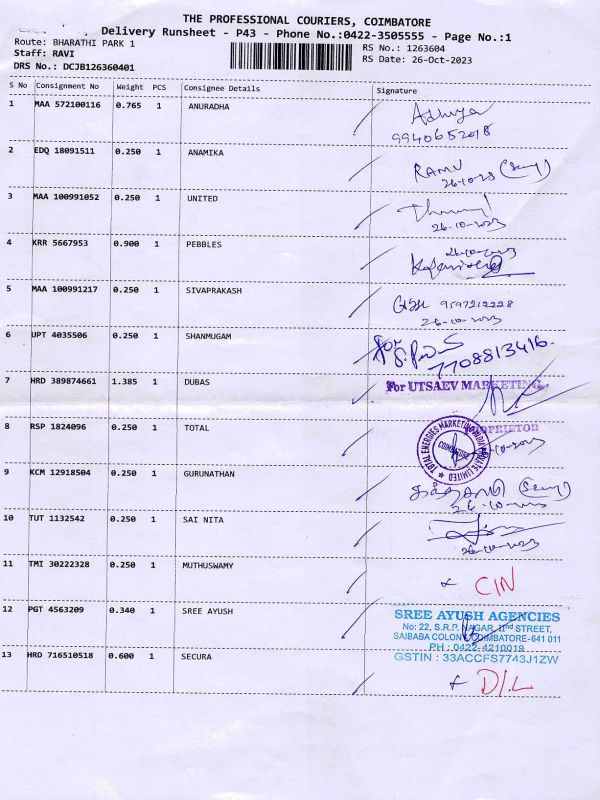 THE PROFESSIONAL COURIERS, COIMBATORE
Delivery Runsheet - P43 - Phone No.:0422-3505555 - Page No.:1
Route: BHARATHI PARK 1 RS No.: 1263604
Staff: RAVI RS Date: 26-Oct-2023
DRS No.: DCJB126360401
S No Consignment No Weight PCS Consignee Details Signature
1 MAA 572100116 0.765 1 ANURADHA
9940652018
2 EDQ 18091511 0.250 1 ANAMIKA RAMU
26-10-23
3 MAA 100991052 0.250 1 UNITED
26-10-2023
4 KRR 5667953 0.900 1 PEBBLES 26-10-2023
5 MAA 100991217 0.250 1 SIVAPRAKASH 9597212228
26-10-2023
6 UPT 4035506 0.250 1 SHANMUGAM for
7708813416.
7 HRD 389874661 1.385 1 DUBAS For UTSAEV MARKETING
PROPRIETOR
8 RSP 1824096 0.250 1 TOTAL TOTAL ENERGIES MARKETING INDIA PRIVATE LIMITED
COIMBATORE
9 KCM 12918504 0.250 1 GURUNATHAN
26-10-2023
10 TUT 1132542 0.250 1 SAI NITA
26-10-2023
11 TMI 30222328 0.250 1 MUTHUSWAMY x CIN
12 PGT 4563209 0.340 1 SREE AYUSH SREE AYUSH AGENCIES
No: 22, S.R.P. NAGAR, IInd STREET,
SAIBABA COLONY, COIMBATORE-641 011
PH : 0422-4210019
GSTIN : 33ACCFS7743J1ZW
13 HRD 716510518 0.600 1 SECURA x D/L